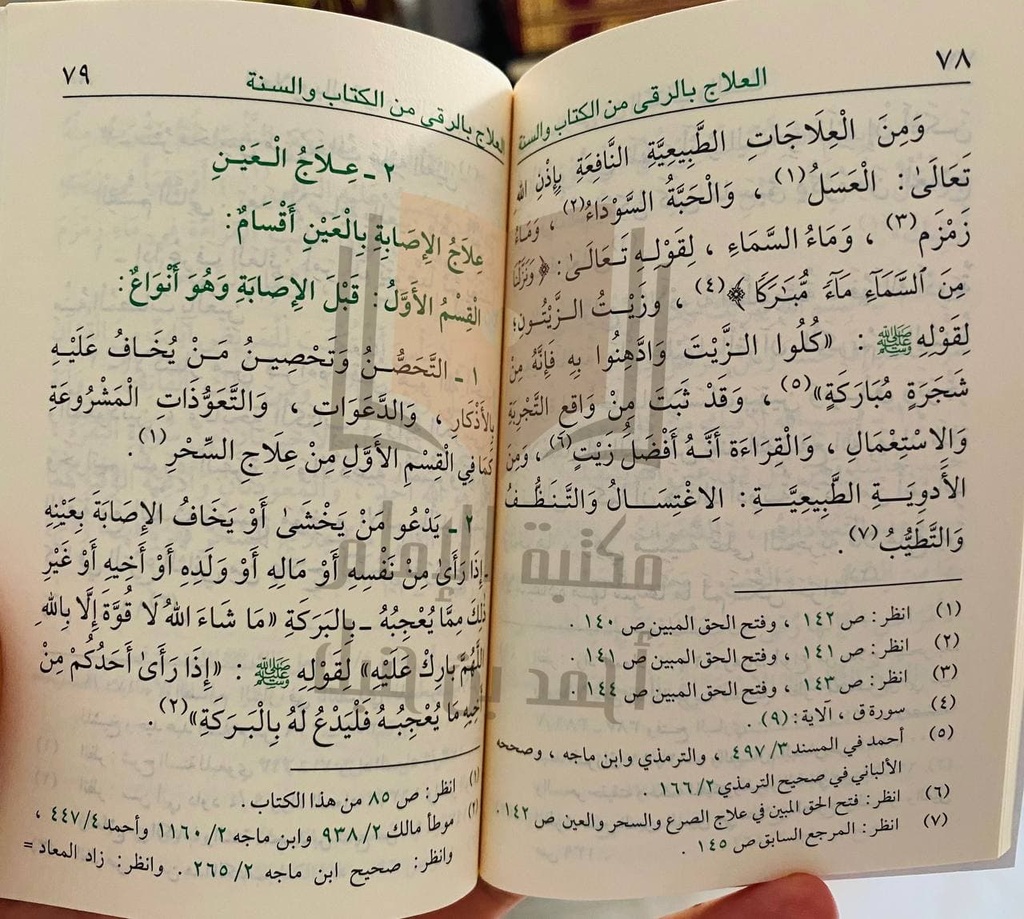 ٧٨
العلاج بالرقى من الكتاب والسنة
وَمِنَ الْعِلَاجَاتِ الطَّبِيعِيَّةِ النَّافِعَةِ بِإِذْنِ اللهِ
تَعَالَىٰ: الْعَسَلُ(١) ، وَالْحَبَّةُ السَّوْدَاءُ(٢) ، وَمَاءُ
زَمْزَم(٣) ، وَمَاءُ السَّمَاءِ ، لِقَوْلِهِ تَعَالَىٰ: ﴿وَنَزَّلْنَا
مِنَ ٱلسَّمَآءِ مَآءً مُّبَٰرَكًا﴾(٤) ، وَزَيْتُ الزَّيْتُونِ؛
لِقَوْلِهِ ﷺ : «كُلُوا الزَّيْتَ وَادَّهِنُوا بِهِ فَإِنَّهُ مِنْ
شَجَرَةٍ مُبَارَكَةٍ»(٥) ، وَقَدْ ثَبَتَ مِنْ وَاقِعِ التَّجْرِبَةِ
وَالِاسْتِعْمَالِ ، وَالْقِرَاءَةِ أَنَّهُ أَفْضَلُ زَيْتٍ(٦) ، وَمِنَ
الأَدوِيَةِ الطَّبِيعِيَّةِ: الِاغْتِسَالُ وَالتَّنَظُّفُ
وَالتَّطَيُّبُ(٧).
(١) انظر: ص ١٤٢ ، وفتح الحق المبين ص ١٤٠ .
(٢) انظر: ص ١٤١ ، وفتح الحق المبين ص ١٤١ .
(٣) انظر: ص ١٤٣ ، وفتح الحق المبين ص ١٤٤ .
(٤) سورة ق ، الآية: (٩) .
(٥) أحمد في المسند ٤٩٧/٣ ، والترمذي وابن ماجه ، وصححه
الألباني في صحيح الترمذي ١٦٦/٢ .
(٦) انظر: فتح الحق المبين في علاج الصرع والسحر والعين ص ١٤٢.
(٧) انظر: المرجع السابق ص ١٤٥ .
٧٩
العلاج بالرقى من الكتاب والسنة
٢ ـ عِلَاجُ الْعَيْنِ
عِلَاجُ الإِصَابَةِ بِالْعَيْنِ أَقْسَامٌ:
الْقِسْمُ الأَوَّلُ: قَبْلَ الإِصَابَةِ وَهُوَ أَنْوَاعٌ:
١ ـ التَّحَصُّنُ وَتَحْصِينُ مَنْ يُخَافُ عَلَيْهِ
بِالأَذْكَارِ ، وَالدَّعَوَاتِ ، وَالتَّعَوُّذَاتِ الْمَشْرُوعَةِ
كَمَا فِي الْقِسْمِ الأَوَّلِ مِنْ عِلَاجِ السِّحْرِ(١) .
٢ ـ يَدْعُو مَنْ يَخْشَىٰ أَوْ يَخَافُ الإِصَابَةَ بِعَيْنِهِ
ـ إِذَا رَأَىٰ مِنْ نَفْسِهِ أَوْ مَالِهِ أَوْ وَلَدِهِ أَوْ أَخِيهِ أَوْ غَيْرِ
ذٰلِكَ مِمَّا يُعْجِبُهُ ـ بِالْبَرَكَةِ «مَا شَاءَ اللهُ لَا قُوَّةَ إِلَّا بِاللهِ
اللَّهُمَّ بَارِكْ عَلَيْهِ» لِقَوْلِهِ ﷺ : «إِذَا رَأَىٰ أَحَدُكُمْ مِنْ
أَخِيهِ مَا يُعْجِبُهُ فَلْيَدْعُ لَهُ بِالْبَرَكَةِ»(٢).
(١) انظر: ص ٨٥ من هذا الكتاب.
(٢) موطأ مالك ٩٣٨/٢ وابن ماجه ١١٦٠/٢ وأحمد ٤٤٧/٤ ،
وانظر: صحيح ابن ماجه ٢٦٥/٢ . وانظر: زاد المعاد =
مكتبة الإمام
أحمد بن حنبل